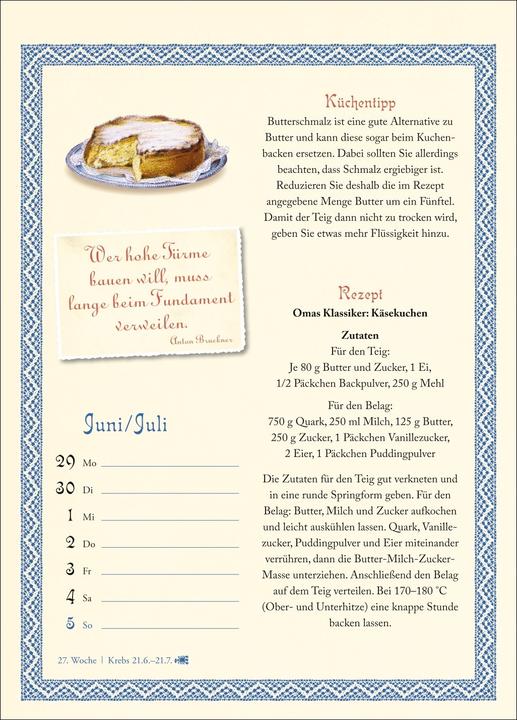 Küchentipp
Butterschmalz ist eine gute Alternative zu
Butter und kann diese sogar beim Kuchen-
backen ersetzen. Dabei sollten Sie allerdings
beachten, dass Schmalz ergiebiger ist.
Reduzieren Sie deshalb die im Rezept
angegebene Menge Butter um ein Fünftel.
Damit der Teig dann nicht zu trocken wird,
geben Sie etwas mehr Flüssigkeit hinzu.
Wer hohe Türme
bauen will, muss
lange beim Fundament
verweilen.
Anton Bruckner
Rezept
Omas Klassiker: Käsekuchen
Zutaten
Für den Teig:
Je 80 g Butter und Zucker, 1 Ei,
1/2 Päckchen Backpulver, 250 g Mehl
Für den Belag:
750 g Quark, 250 ml Milch, 125 g Butter,
250 g Zucker, 1 Päckchen Vanillezucker,
2 Eier, 1 Päckchen Puddingpulver
Die Zutaten für den Teig gut verkneten und
in eine runde Springform geben. Für den
Belag: Butter, Milch und Zucker aufkochen
und leicht auskühlen lassen. Quark, Vanille-
zucker, Puddingpulver und Eier miteinander
verrühren, dann die Butter-Milch-Zucker-
Masse unterziehen. Anschließend den Belag
auf dem Teig verteilen. Bei 170–180 °C
(Ober- und Unterhitze) eine knappe Stunde
backen lassen.
Juni/Juli
29 Mo
30 Di
1 Mi
2 Do
3 Fr
4 Sa
5 So
27. Woche | Krebs 21.6.–21.7.